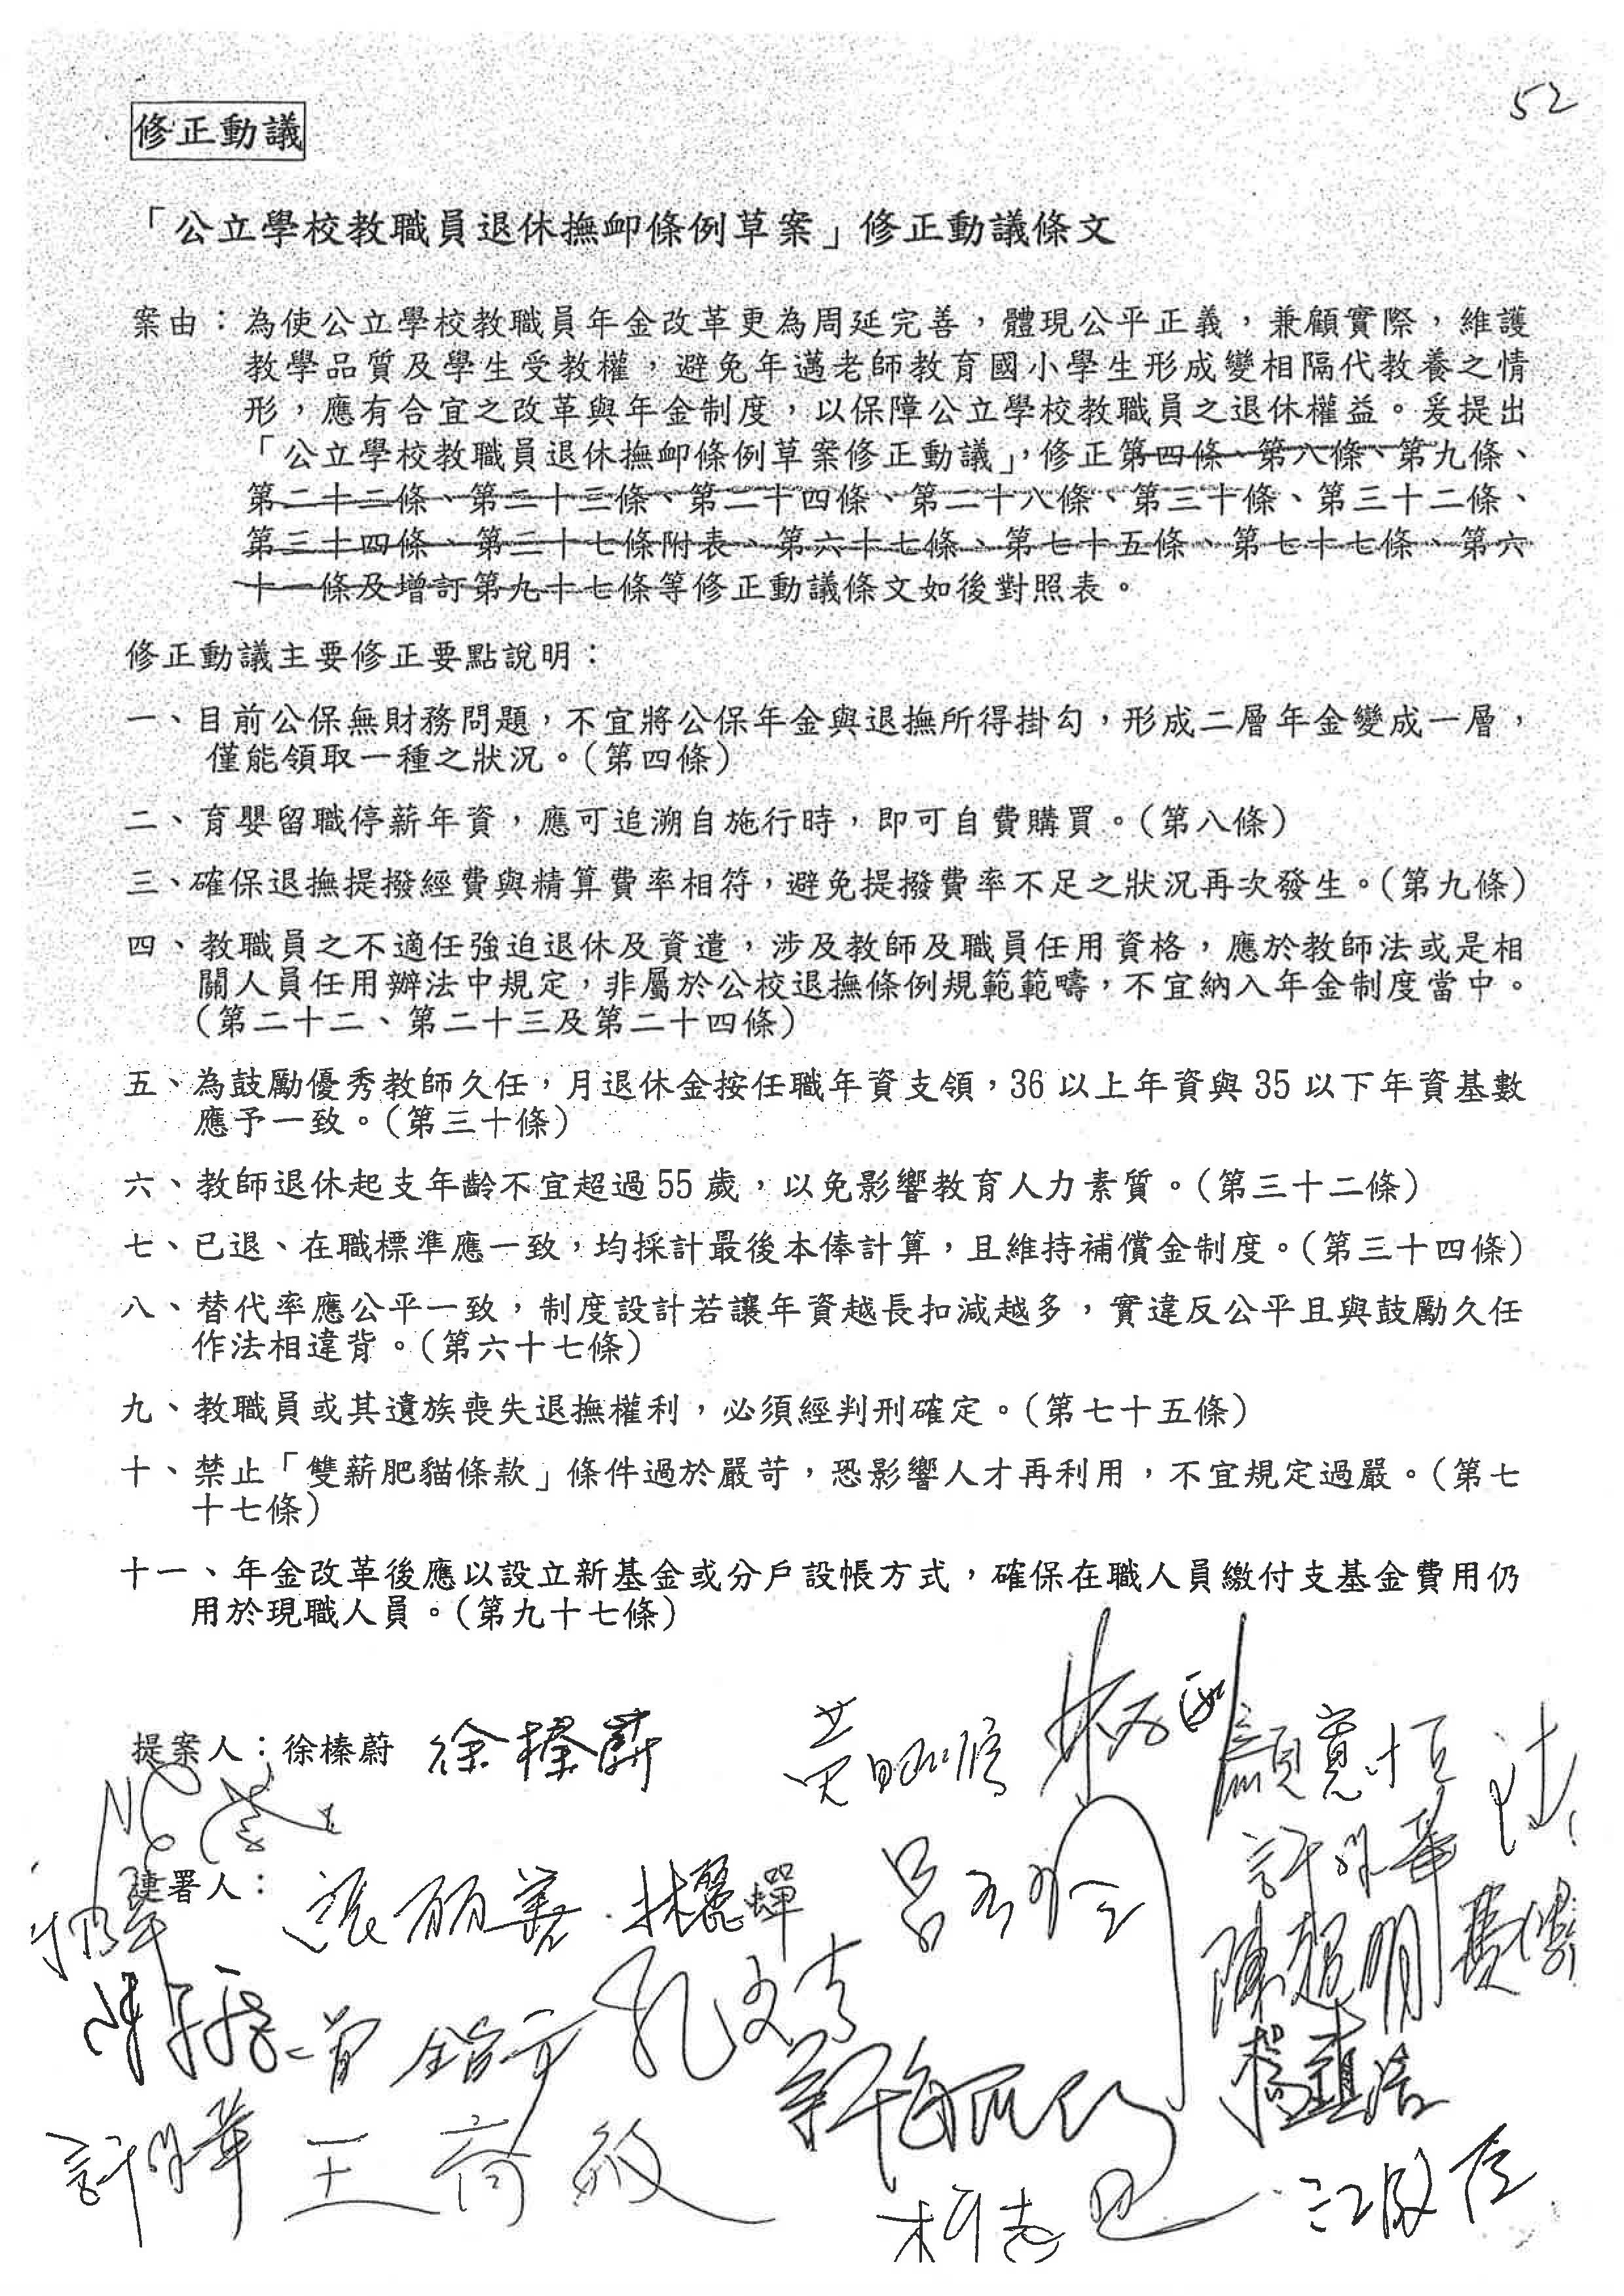 52
修正動議
「公立學校教職員退休撫卹條例草案」修正動議條文
案由：為使公立學校教職員年金改革更為周延完善，體現公平正義，兼顧實際，維護
教學品質及學生受教權，避免年邁老師教育國小學生形成變相隔代教養之情
形，應有合宜之改革與年金制度，以保障公立學校教職員之退休權益。爰提出
「公立學校教職員退休撫卹條例草案修正動議」，修正第四條、第八條、第九條、
第二十二條、第二十三條、第二十四條、第二十八條、第三十條、第三十二條、
第三十四條、第三十七條附表、第六十七條、第七十五條、第七十七條、第六
十一條及增訂第九十七條等修正動議條文如後對照表。
修正動議主要修正要點說明：
一、目前公保無財務問題，不宜將公保年金與退撫所得掛勾，形成二層年金變成一層，
僅能領取一種之狀況。（第四條）
二、育嬰留職停薪年資，應可追溯自施行時，即可自費購買。（第八條）
三、確保退撫提撥經費與精算費率相符，避免提撥費率不足之狀況再次發生。（第九條）
四、教職員之不適任強迫退休及資遣，涉及教師及職員任用資格，應於教師法或是相
關人員任用辦法中規定，非屬於公校退撫條例規範範疇，不宜納入年金制度當中。
（第二十二、第二十三及第二十四條）
五、為鼓勵優秀教師久任，月退休金按任職年資支領，36 以上年資與 35 以下年資基數
應予一致。（第三十條）
六、教師退休起支年齡不宜超過 55 歲，以免影響教育人力素質。（第三十二條）
七、已退、在職標準應一致，均採計最後本俸計算，且維持補償金制度。（第三十四條）
八、替代率應公平一致，制度設計若讓年資越長扣減越多，實違反公平且與鼓勵久任
作法相違背。（第六十七條）
九、教職員或其遺族喪失退撫權利，必須經判刑確定。（第七十五條）
十、禁止「雙薪肥貓條款」條件過於嚴苛，恐影響人才再利用，不宜規定過嚴。（第七
十七條）
十一、年金改革後應以設立新基金或分戶設帳方式，確保在職人員繳付支基金費用仍
用於現職人員。（第九十七條）
提案人：徐榛蔚 徐榛蔚 黃昭順 顏寬恒
連署人： 張麗善 林麗蟬 呂玉玲 許淑華
陳超明 費鴻泰
曾銘宗 孔文吉
楊鎮浯
許淑華 王育敏
柯志恩 江啟臣